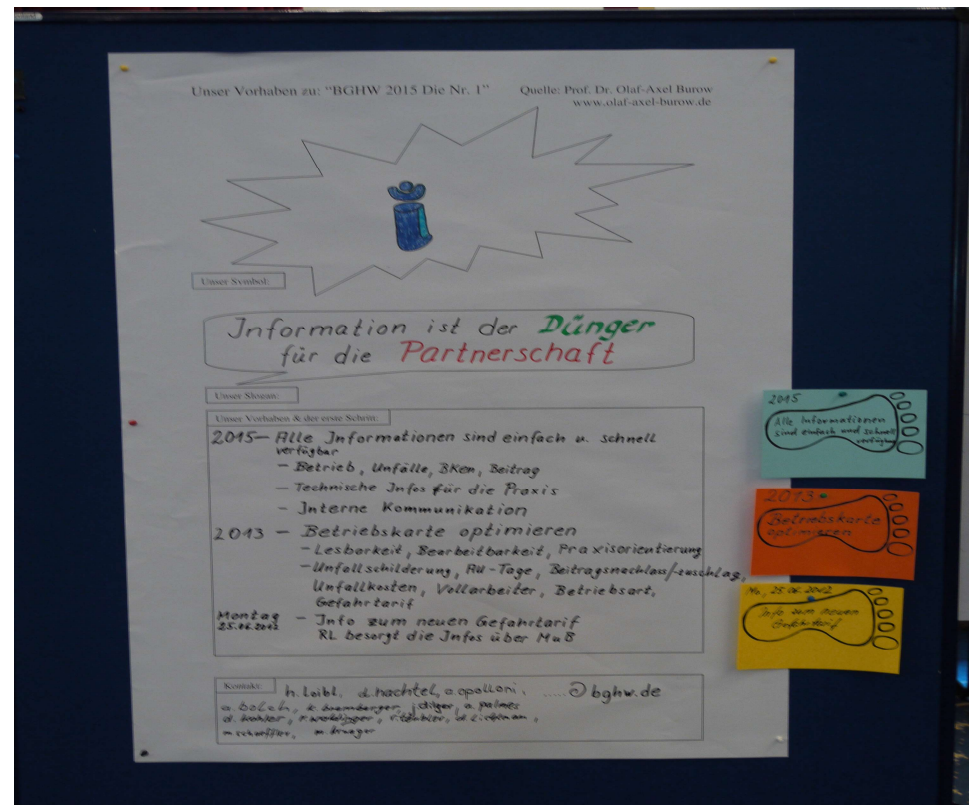 Unser Vorhaben zu: "BGHW 2015 Die Nr. 1"
Quelle: Prof. Dr. Olaf-Axel Burow
www.olaf-axel-burow.de
Unser Symbol:
Information ist der Dünger
für die Partnerschaft
Unser Slogan:
Unser Vorhaben & der erste Schritt:
2015 – Alle Informationen sind einfach u. schnell
verfügbar
– Betrieb, Unfälle, BKen, Beitrag
– Technische Infos für die Praxis
– Interne Kommunikation
2013 – Betriebskarte optimieren
– Lesbarkeit, Bearbeitbarkeit, Praxisorientierung
– Unfallschilderung, AU-Tage, Beitragsnachlass/-zuschlag,
Unfallkosten, Vollarbeiter, Betriebsart,
Gefahrtarif
Montag – Info zum neuen Gefahrtarif
25.06.2012 RL besorgt die Infos über MuB
Kontakt: h. loibl, d. hachtel, a. apolloni, ..... @bghw.de
a. bolch, j. dilger, a. palmes
d. kohler,
2015
Alle Informationen
sind einfach und schnell
verfügbar
2013
Betriebskarte
optimieren
Mo, 25.06.2012
Info zum neuen
Gefahrtarif